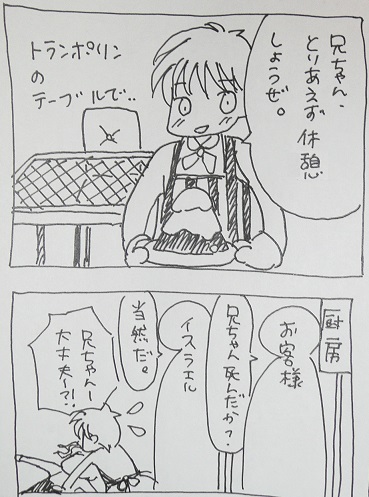 兄ちゃん、
とりあえず休憩
しようぜ。
トランポリン
の
テーブルで‥
厨房
お客様
兄ちゃん死んだか？
イスラエル
当然だ。
兄ちゃんー
大丈夫〜?!!